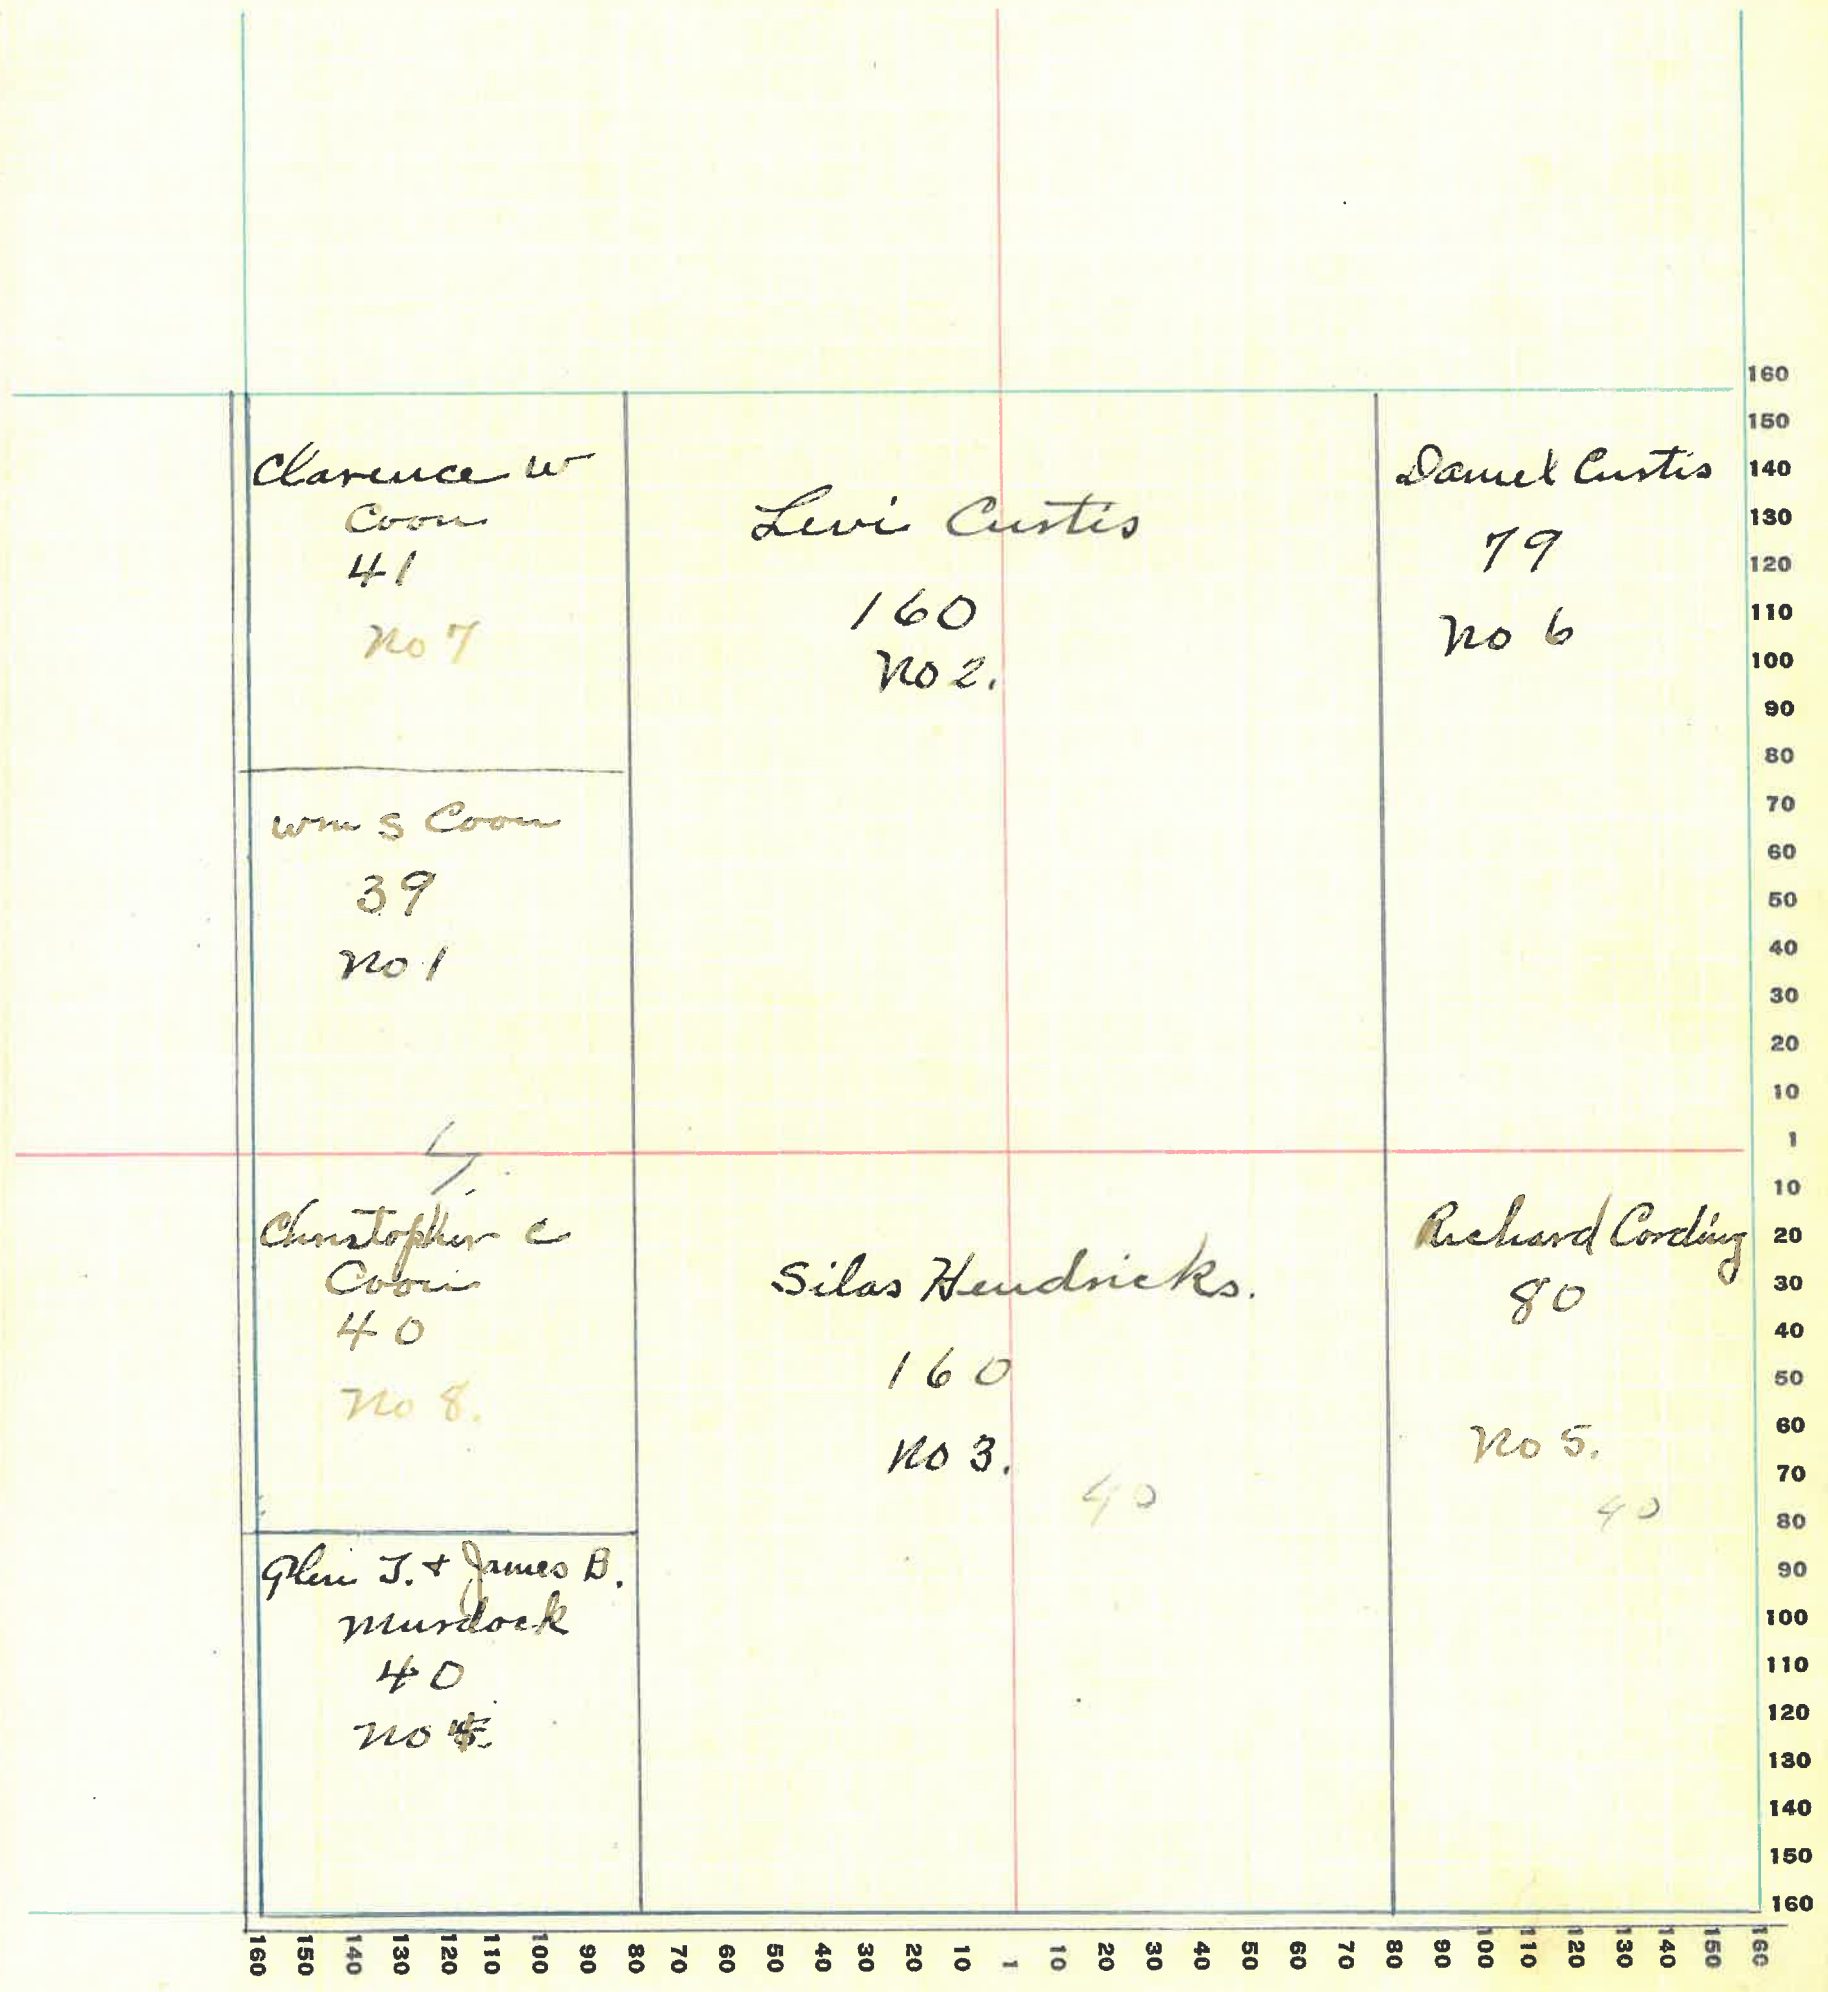 Clarence W
Coon
41
No 7
Levi Curtis
160
No 2.
Daniel Curtis
79
No 6
Wm S Coon
39
No 1
Christopher C
Coon
40
No 8.
Silas Hendricks.
160
No 3.
40
Richard Cording
80
No 5.
40
Glen T. & James B.
Murdock
40
No 4
160
150
140
130
120
110
100
90
80
70
60
50
40
30
20
10
1
10
20
30
40
50
60
70
80
90
100
110
120
130
140
150
160
160 150 140 130 120 110 100 90 80 70 60 50 40 30 20 10 1 10 20 30 40 50 60 70 80 90 100 110 120 130 140 150 160